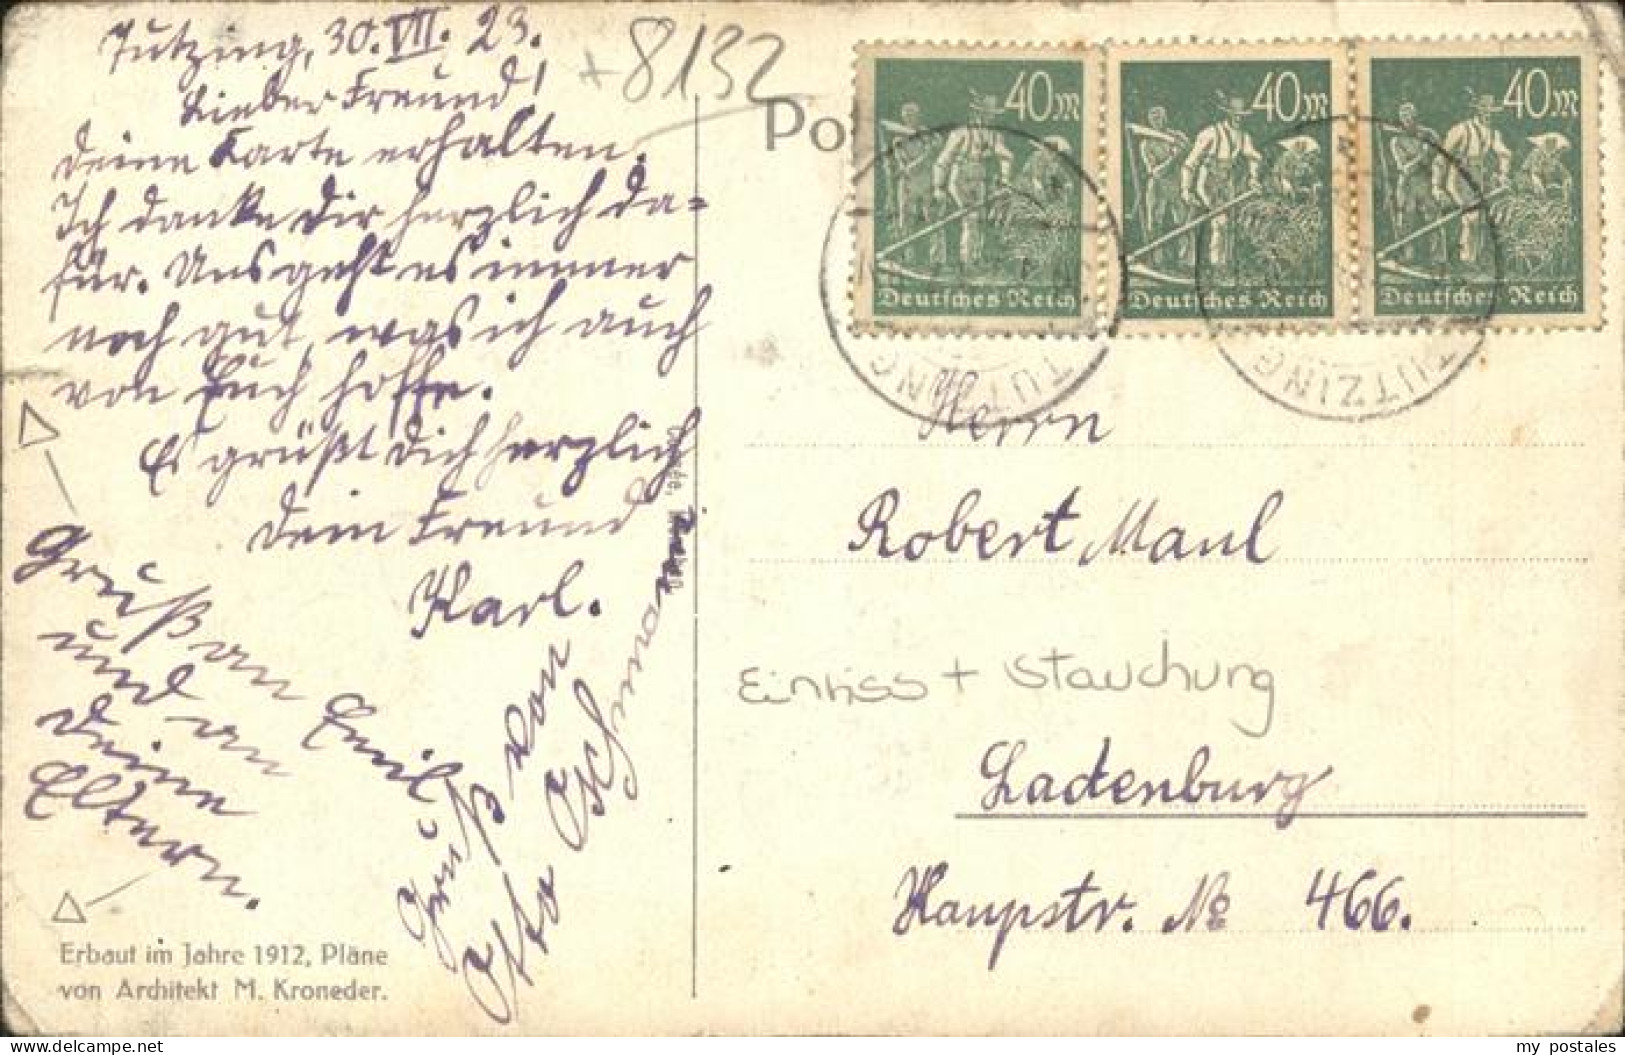 Tutzing, 30. VII. 23.
Lieber Freund!
Deine Karte erhalten.
Ich danke Dir herzlich da=
für. Uns geht es immer
noch gut, was ich auch
von Euch hoffe.
Es grüßt Dich herzlich
Dein Freund
Karl.
Gruß an Emil
und an
Deine
Eltern.
Gruß von
Otto
Erbaut im Jahre 1912, Pläne
von Architekt M. Kroneder.
+8132
Po
40 M
Deutsches Reich
40 M
Deutsches Reich
40 M
Deutsches Reich
TUTZING
TUTZING
Herrn
Robert Maul
Einriss + Stauchung
Ladenburg
Haupstr. No 466.
my postales